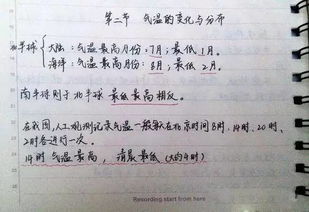 第二节 气温的变化与分布
北半球
大陆:气温最高月份:7月;最低1月。
海洋:气温最高月份:8月;最低2月。
南半球则于北半球最低最高相反。
在我国,人工观测记录气温一般取在北京时间8时、14时、20时、
2时各进行一次。
14时气温最高,清晨最低(大约4时)
Recording start from here